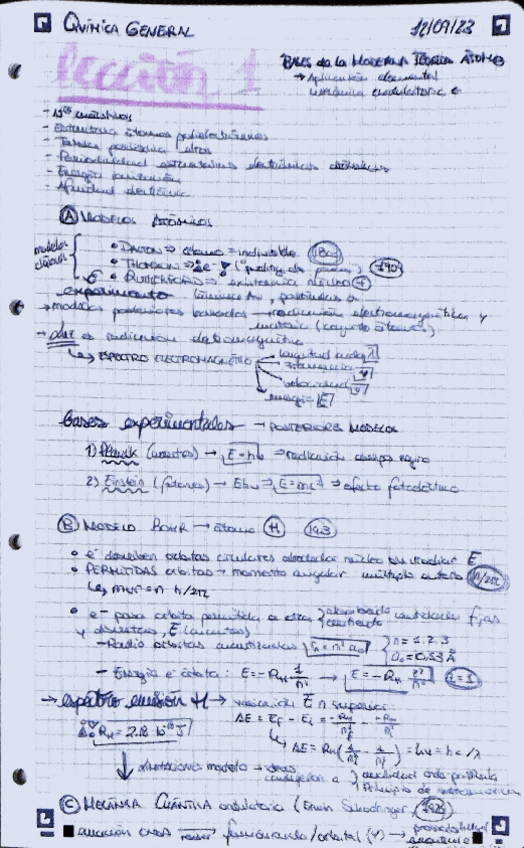 QUÍMICA GENERAL 12/09/23
Lección 1
BASES de la MODERNA TEORÍA ATÓMICA
→ Aplicación elemental
mecánica ondulatoria e
- Nos cuánticos
- Estructura átomos polielectrónicos
- Periodicidad estructuras electrónicas
- Energía ionización
- Afinidad electrónica
A MODELOS ATÓMICOS
modelos clásicos
• DALTON ⇒ átomo = indivisible
• THOMSON ⇒ e- ("pudding de pasas") 1904
• RUTHERFORD ⇒ existencia núcleo +
experimento lámina Au, partículas α
→ modelos posteriores basados → radiación electromagnética y
materia
→ Luz es radiación electromagnética
↳ ESPECTRO ELECTROMAGNÉTICO
longitud onda λ
frecuencia
velocidad
energía E
Bases experimentales → POSTERIORES MODELOS
1) Planck (cuantos) → E=hν ⇒ radiación cuerpo negro
2) Einstein (fotones) → E=mc² ⇒ efecto fotoeléctrico
B MODELO BOHR → átomo H 1913
• e- describen órbitas circulares alrededor núcleo sin irradiar E
• PERMITIDAS órbitas → momento angular múltiplo entero h/2π
↳ mvr = n h/2π
• e- pasa órbita permitida a otra absorbiendo cantidades fijas
y discretas, E (cuantos)
- Radio órbitas cuantizadas rn = n² a0 n = 1, 2, 3
a0 = 0,53 Å
- Energía e- órbita: E = -RH 1/n² → E = -RH z²/n²
→ espectro emisión H → variación E n superior:
ΔE = Ef - Ei = -RH/nf² - -RH/ni²
RH = 2.18·10-18 J
↳ ΔE = RH(1/ni² - 1/nf²) = hν = hc/λ
LIMITACIONES modelo → ideas
condujeron a dualidad onda-partícula
Principio de incertidumbre
C MECÁNICA CUÁNTICA ondulatoria (Erwin Schrödinger, 1926)
■ ecuación onda → función onda/orbital (Ψ) →